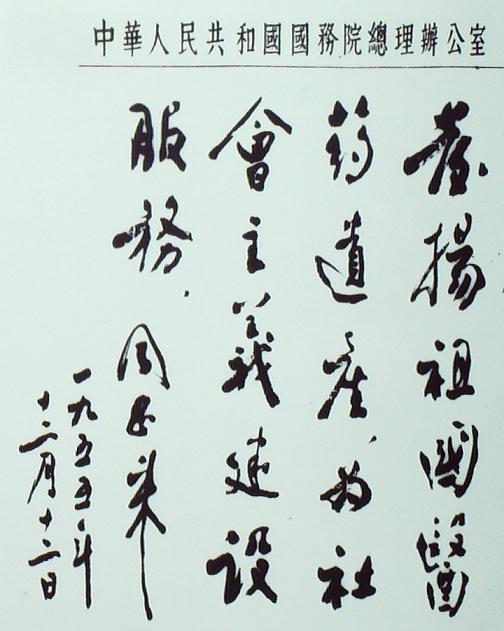 中華人民共和國國務院總理辦公室
發揚祖國醫
药遺産,为社
會主義建設
服務.周恩来
一九五五年
十二月十二日